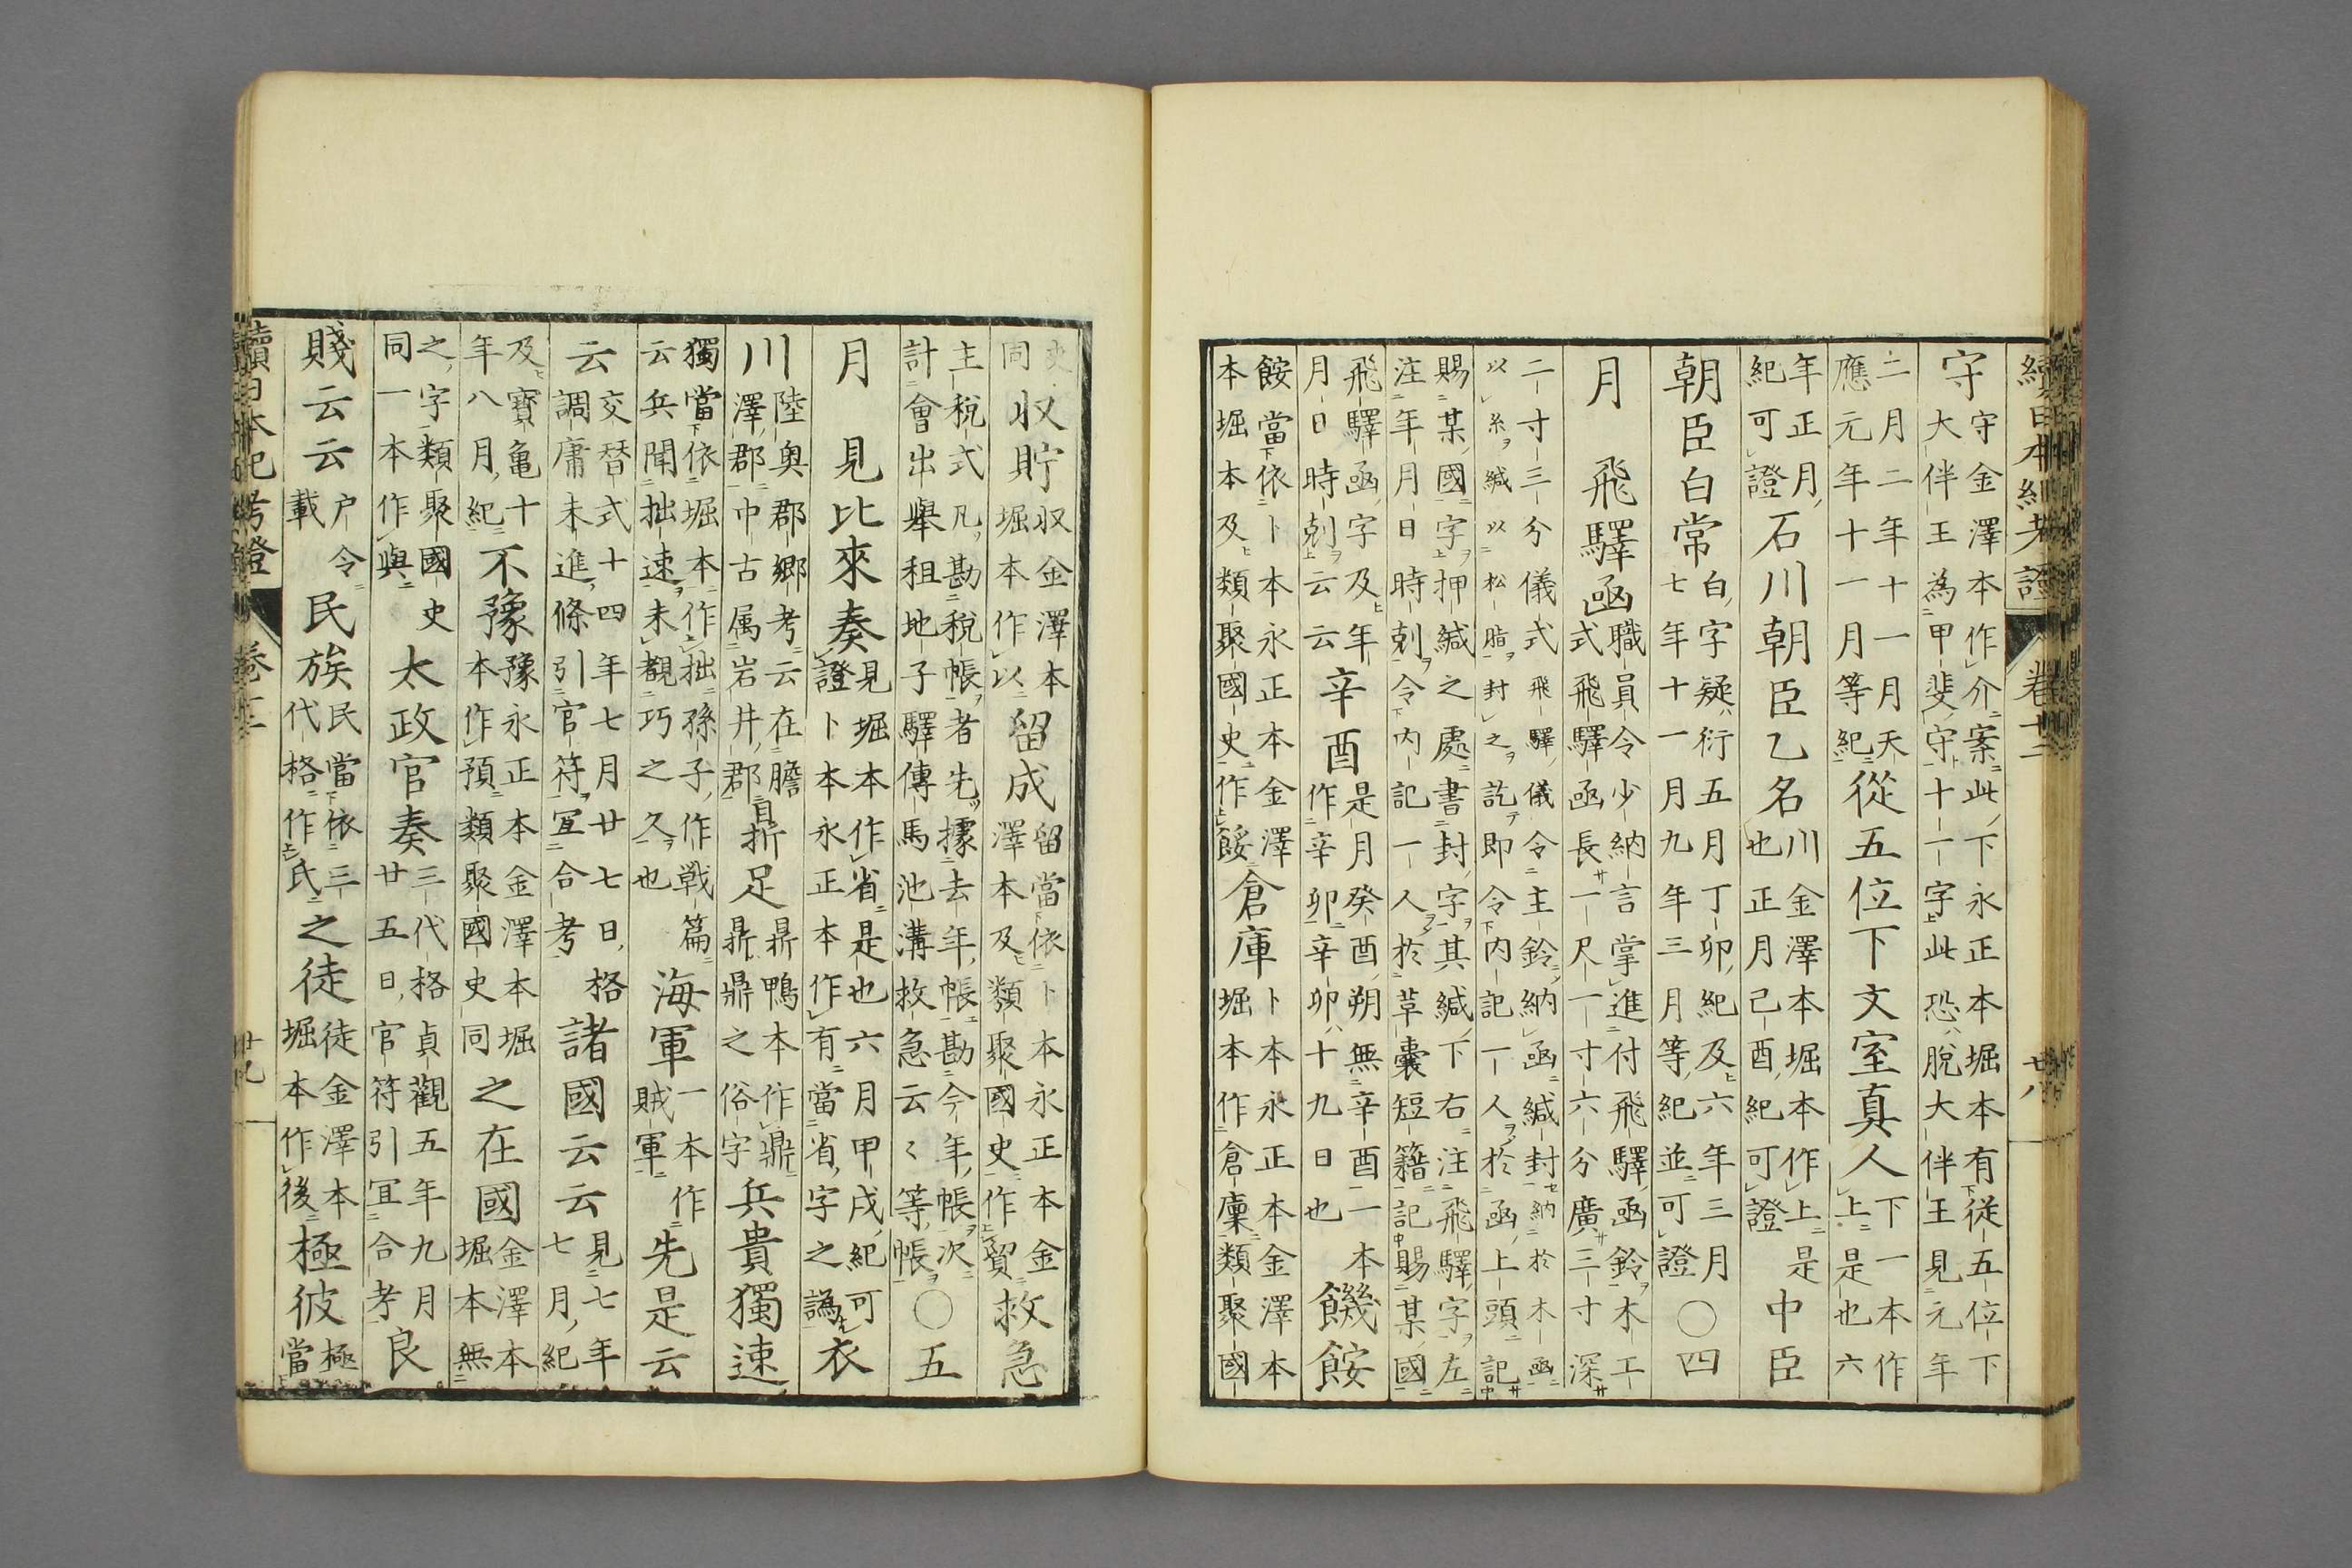 續日本紀考證 卷十二 廿八
守守金澤本作介案此下永正本堀本有從五位下大伴王為甲斐守十一字此恐脫大伴王見元年
二月二年十一月天應元年十一月等紀從五位下文室真人下一本作上是也六
年正月紀可證石川朝臣乙名川金澤本堀本作上是也正月己酉紀可證中臣
朝臣白常白字疑衍五月丁卯紀及六年三月七年十一月九年三月等紀並可證〇四
月 飛驛函職員令少納言掌進付飛驛函鈴木工式飛驛函長一尺一寸六分廣三寸深
二寸三分儀式飛驛儀令主鈴納函緘封納於木函以糸緘以松脂封之訖即令内記一人於函上頭記
賜某國字押緘之處書封字其緘下右注飛驛字左注年月日時剋令内記一人於草囊短籍記賜某國
飛驛函字及年月日時剋云云辛酉是月癸酉朔無辛酉一本作辛卯辛卯十九日也饑䬶
䬶當依卜本永正本金澤本堀本及類聚國史作餒倉庫卜本永正本金澤本堀本作倉廩類聚國
史同収貯収金澤本堀本作以留成留當依卜本永正本金澤本及類聚國史作貿救急
主稅式凡勘稅帳者先據去年帳勘今年帳次計會出舉租地子驛傳馬池溝救急云〻等帳〇五
月 見比來奏見堀本作省是也六月甲戌紀可證卜本永正本作有當省字之譌衣
川陸奧郡鄉考云在膽澤郡中古属岩井郡折足鼎鼎鴨本作鼎鼎之俗字兵貴獨速
獨當依堀本作拙孫子作戰篇云兵聞拙速未覩巧之久也海軍一本作賊軍先是云
云交替式十四年七月廿七日格調庸未進條引官符宜合考諸國云云見七年七月紀
及寶龜十年八月紀不豫豫永正本金澤本堀本作預類聚國史同之在國金澤本堀本無
之字類聚國史同一本作與太政官奏三代格貞觀五年九月廿五日官符引宜合考良
賤云云户令載民族民當依三代格作氏之徒徒金澤本堀本作後極彼極當
續日本紀考證 卷十二 廿九